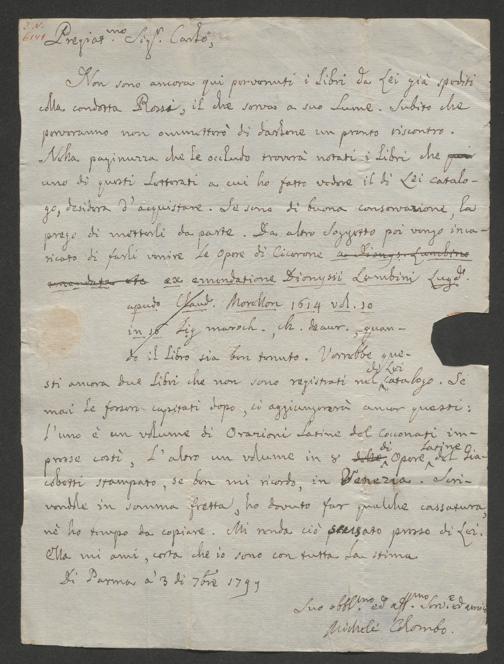 Pregiat.mo Sig.r Carlo,
Non sono ancora qui pervenuti i Libri da Lei già spediti
colla condotta Rossi, il che serva a suo Lume. Subito che
perverranno non ommetterò di dartene un pronto riscontro.
Nella paginuzza che le occludo troverà notati i Libri che
uno di questi Letterati a cui ho fatto vedere il di Lei catalo-
go, desidera d'acquistare. Se sono di buona conservazione, la
prego di metterli da parte. Da altro Soggetto poi vengo inca-
ricato di farli venire le Opere di Cicerone a Dionys. Lambino
emendata ex emendatione Dionysii Lambini Lugd.
apud Claud. Morellon 1614 vol. 10
in 16 Lig. maroch., ch. deaur., quan-
do il Libro sia ben tenuto. Vorrebbe que-
sti ancora due Libri che non sono registrati nel di Lei Catalogo. Se
mai le fossero capitati dopo, ci aggiungererà ancor questi:
L'uno è un volume di Orazioni Latine del Coconati im-
presse costì, L'altro un volume in 8 delle di Opere Latine del Gia-
cobetti stampato, se ben mi ricordo, in Venezia. Scri-
vendole in somma fretta, ho dovuto far qualche cassatura,
nè ho tempo da copiare. Mi renda ciò scusato presso di Lei.
Ella mi ami, certa che io sono con tutta la stima
Di Parma a' 3 di 7bre 1799
Suo obbl.mo ed aff.mo Serv.e ed amico
Michele Colombo.